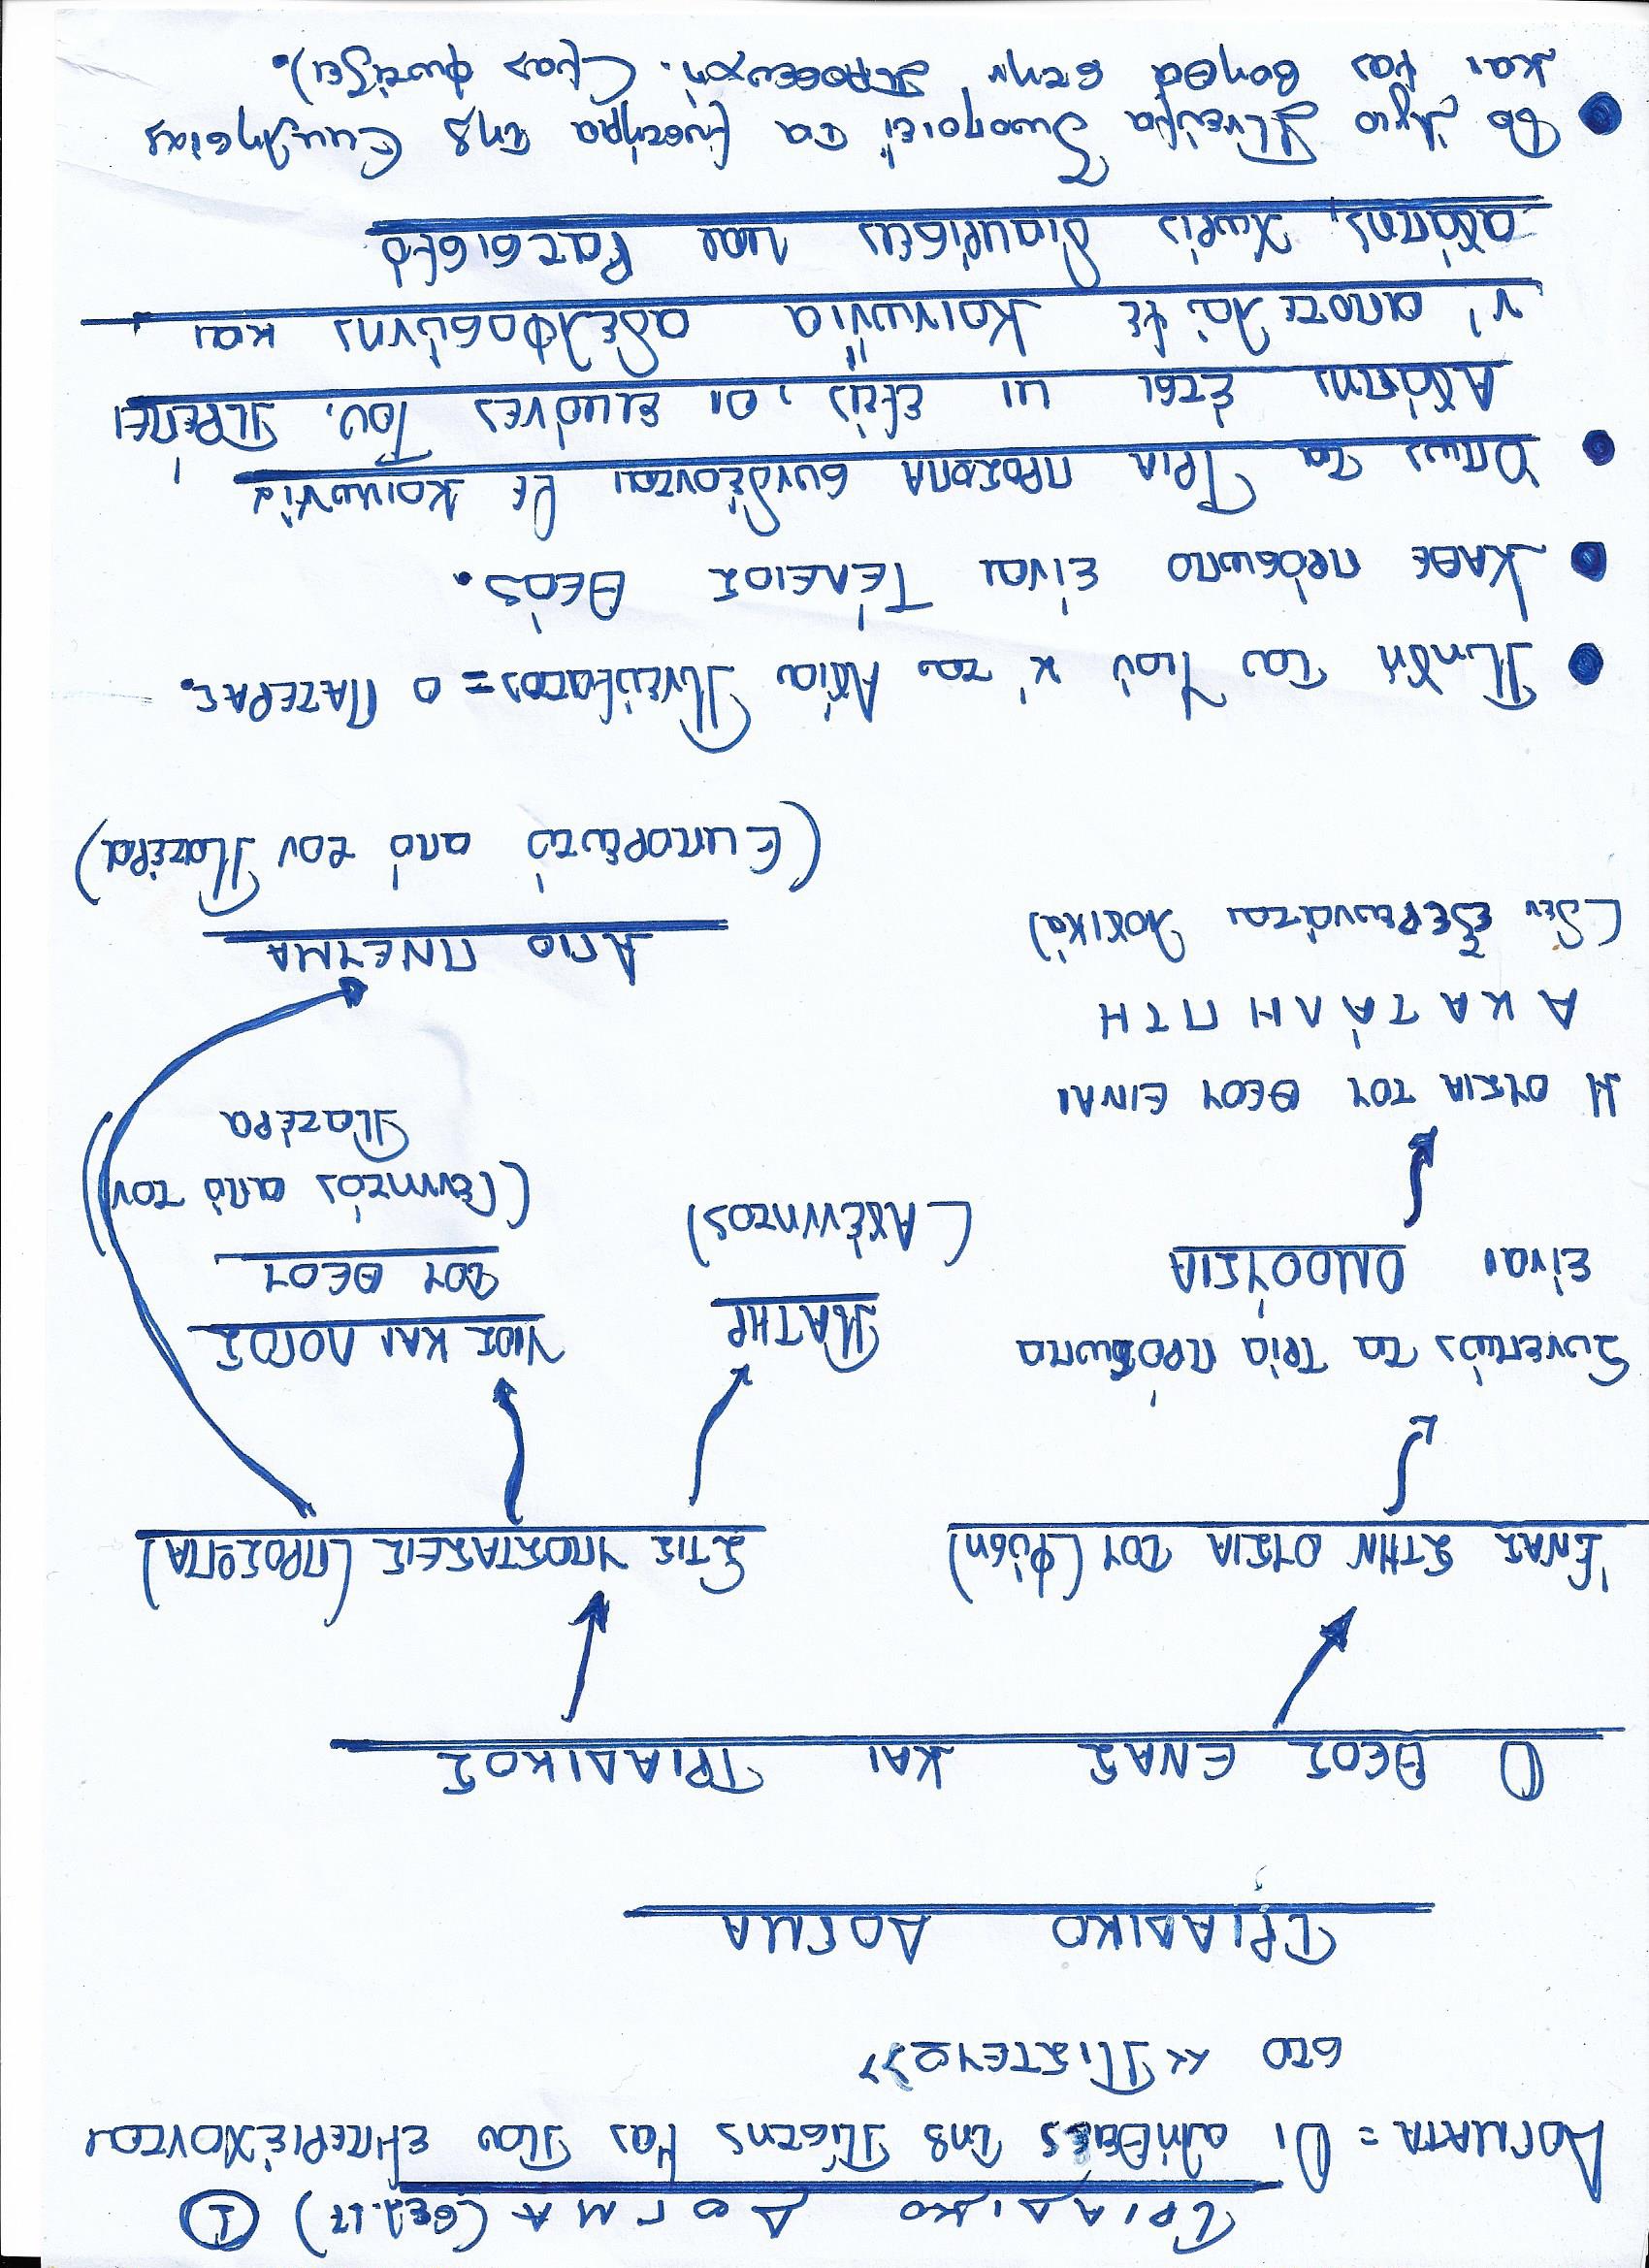 ΤΡΙΑΔΙΚΟ ΔΟΓΜΑ (σελ.17) 1
ΔΟΓΜΑΤΑ = Οι αλήθειες της Πίστης μας Που ΕΜΠΕΡΙΕΧΟΝΤΑΙ
στο «ΠΙΣΤΕΥΩ»
ΤΡΙΑΔΙΚΟ ΔΟΓΜΑ
Ο ΘΕΟΣ ΕΝΑΣ ΚΑΙ ΤΡΙΑΔΙΚΟΣ
ΈΝΑΣ ΣΤΗΝ ΟΥΣΙΑ ΤΟΥ (φύση)
ΣΤΙΣ ΥΠΟΣΤΑΣΕΙΣ (ΠΡΟΣΩΠΑ)
Συνεπώς τα τρία πρόσωπα
είναι ΟΜΟΟΎΣΙΑ
Η ΟΥΣΙΑ ΤΟΥ ΘΕΟΥ ΕΙΝΑΙ
ΑΚΑΤΆΛΗΠΤΗ
(Δεν εξερευνάται λογικά)
ΠΑΤΗΡ
(Αγέννητος)
ΥΙΟΣ ΚΑΙ ΛΟΓΟΣ
ΤΟΥ ΘΕΟΥ
(Γεννητός από τον
Πατέρα)
ΑΓΙΟ ΠΝΕΥΜΑ
(Εκπορευτό από τον Πατέρα)
• Πηγή του Υιού κ' του Αγίου Πνεύματος = ο ΠΑΤΕΡΑΣ.
• ΚΑΘΕ πρόσωπο είναι ΤΈΛΕΙΟΣ Θεός.
• Όπως τα ΤΡΙΑ ΠΡΟΣΩΠΑ συνδέονται με κοινωνία
Αγάπης έτσι κι εμείς, οι εικόνες Του, ΠΡΈΠΕΙ
ν' αποτελούμε κοινωνία αδελφοσύνης και
αγάπης, χωρίς διακρίσεις και ρατσισμό
• Το Άγιο Πνεύμα ζωοποιεί τα μυστήρια της Εκκλησίας
και μας βοηθά στην προσευχή. (μας φωτίζει).